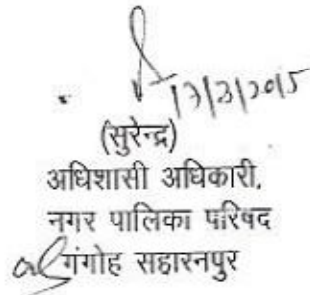 17/3/2015
(सुरेन्द्र)
अधिशासी अधिकारी,
नगर पालिका परिषद
गंगोह सहारनपुर